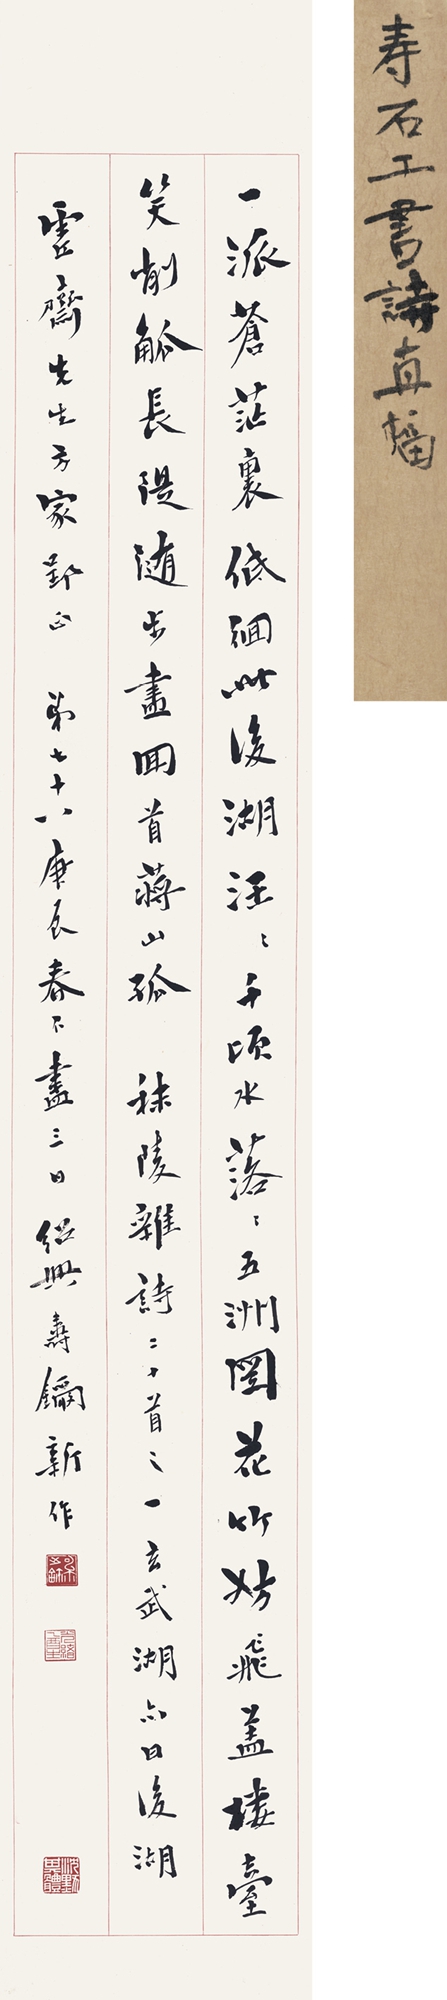 寿石工書詩直幅
一派蒼茫裏低佪此後湖汪〻千頃水落〻五洲圖花竹妨飛蓋樓臺
笑削觚長隄随步盡回首蔣山孤 秣陵雜詩二十首之一玄武湖亦曰後湖
齋先生方家正 第七十八庚辰春不盡三日紹興壽鑈新作